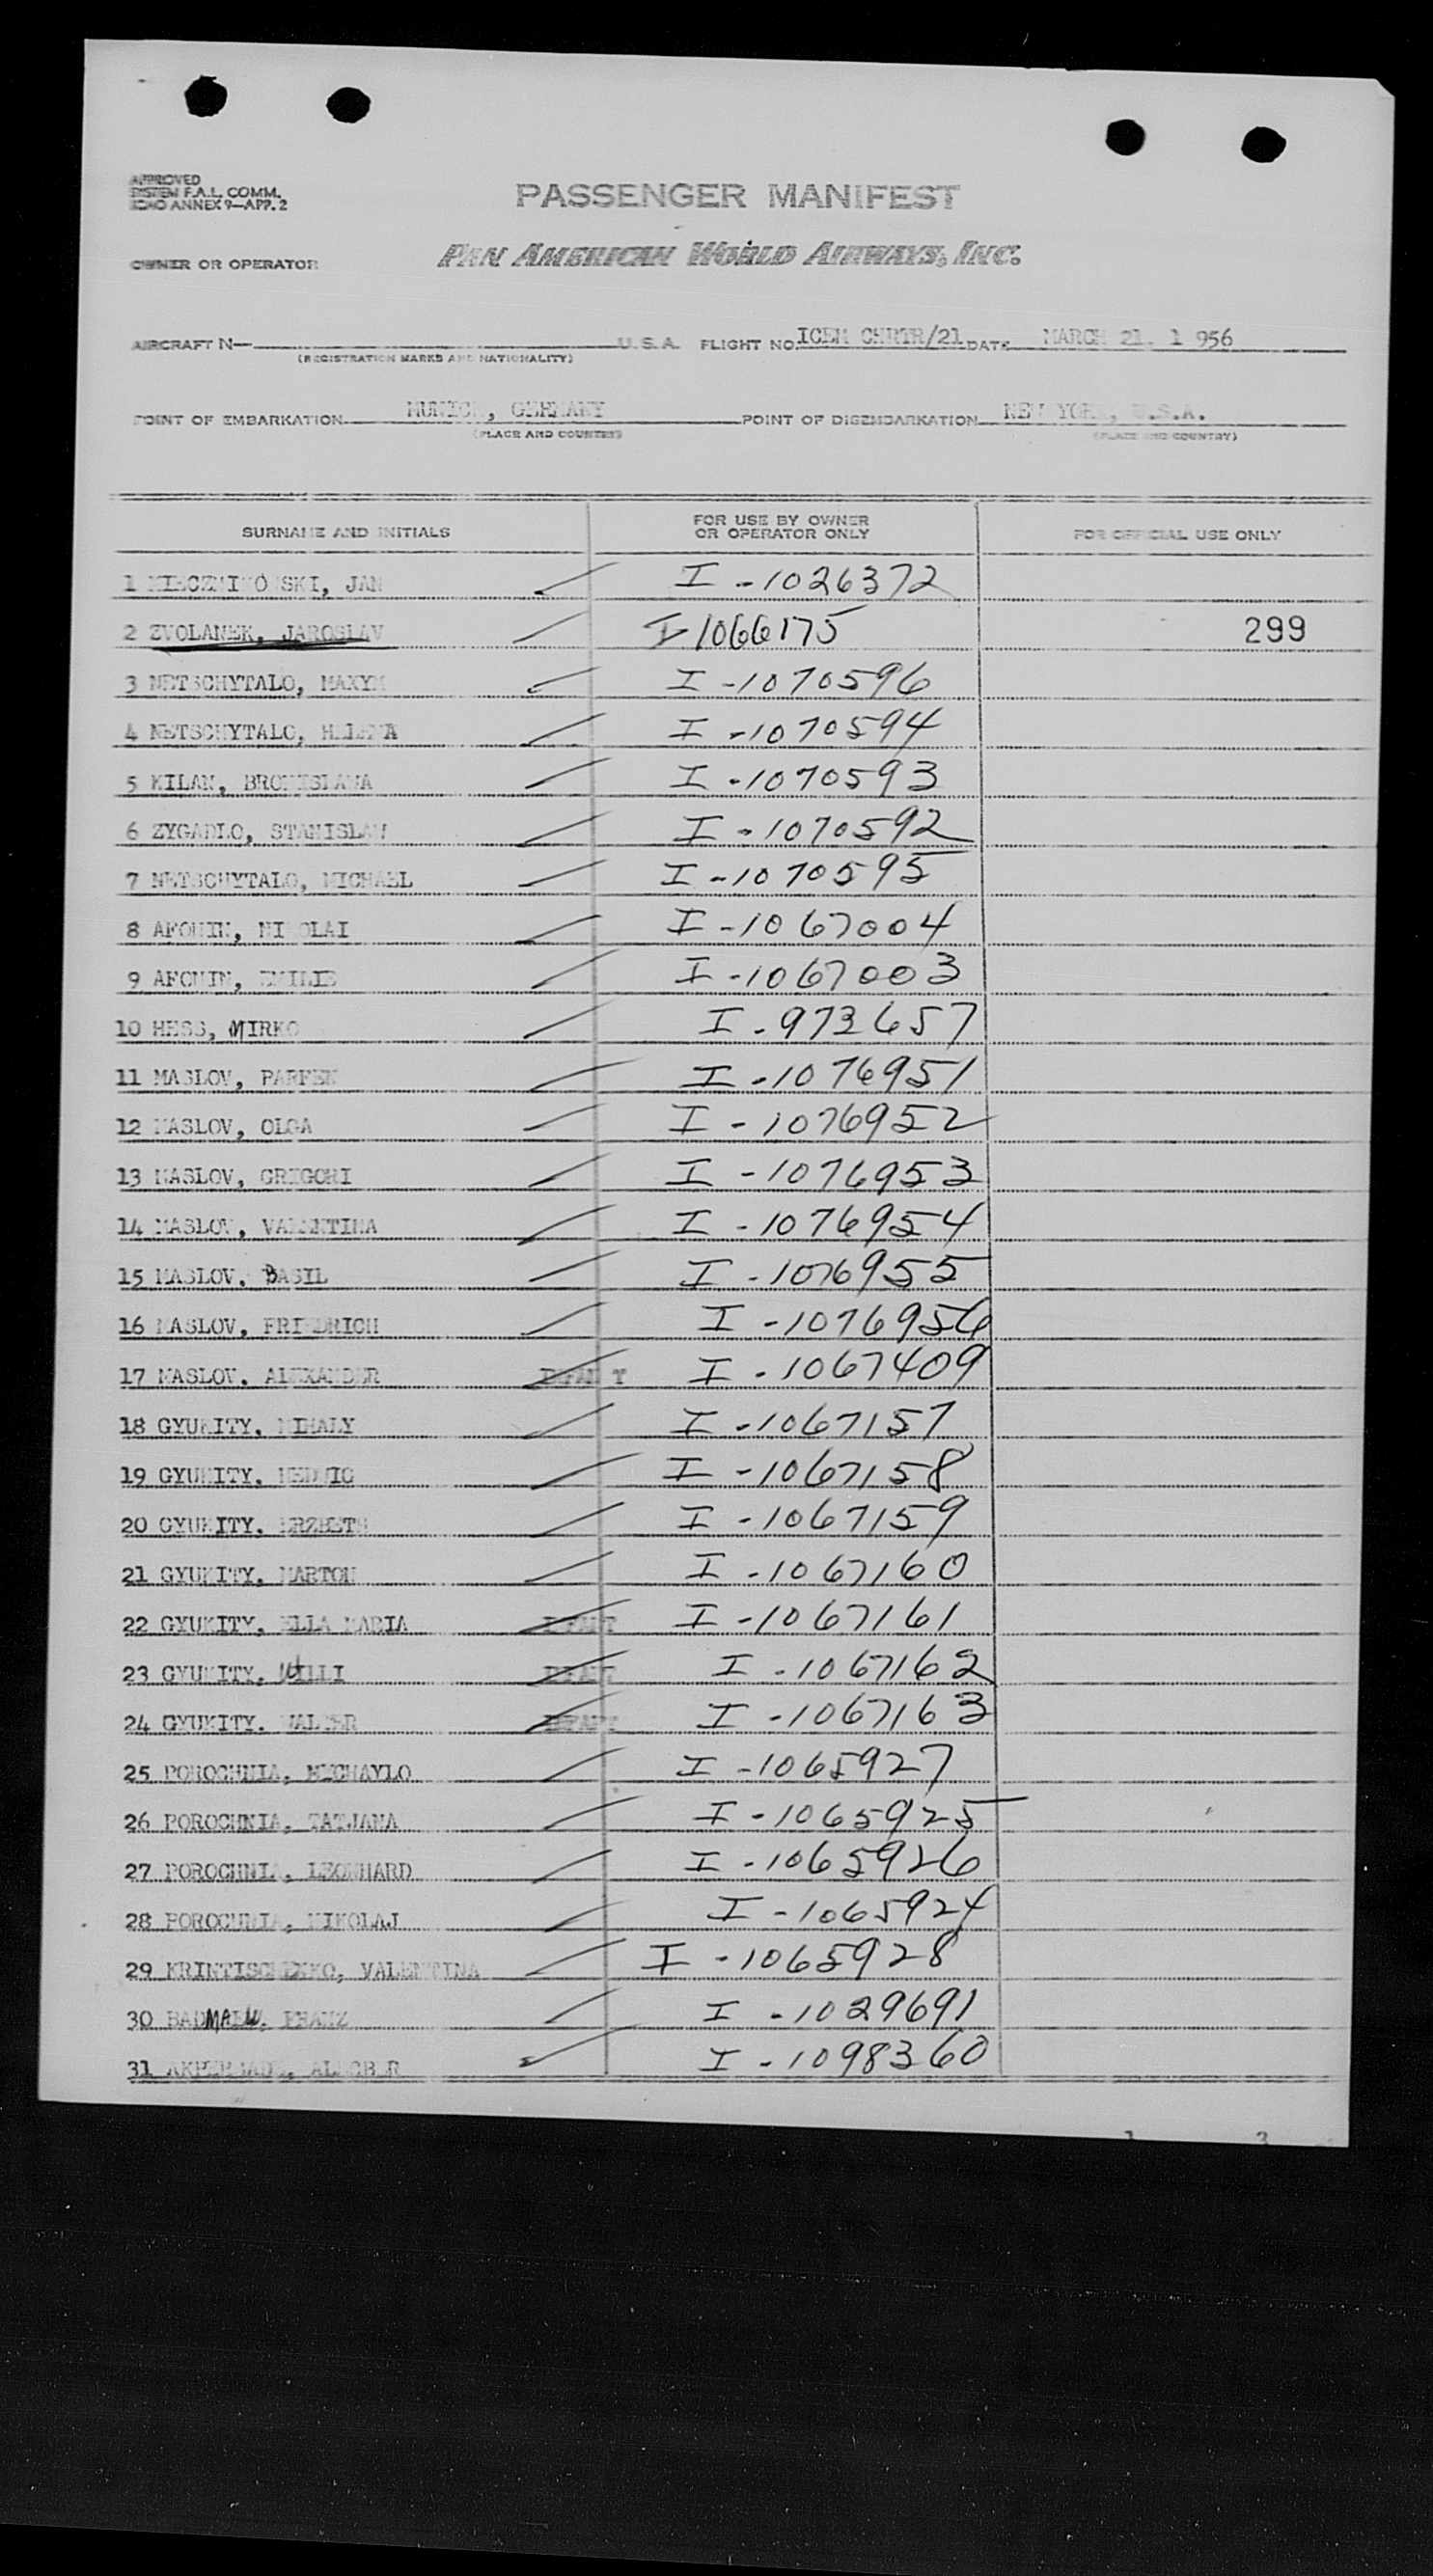 APPROVED
SYSTEM F.A.L. COMM.
ICAO ANNEX 9—APP. 2
PASSENGER MANIFEST
OWNER OR OPERATOR
PAN AMERICAN WORLD AIRWAYS, INC.
AIRCRAFT N— U.S.A. FLIGHT NO. ICEM CHRTR/21 DATE MARCH 21. 1 956
(REGISTRATION MARKS AND NATIONALITY)
POINT OF EMBARKATION MUNICH, GERMANY POINT OF DISEMBARKATION NEW YORK, U.S.A.
(PLACE AND COUNTRY) (PLACE AND COUNTRY)
SURNAME AND INITIALS FOR USE BY OWNER OR OPERATOR ONLY FOR OFFICIAL USE ONLY
1 MIECZNIKOWSKI, JAN I-1026372
2 ZVOLANEK, JAROSLAV I-1066175 299
3 NETSCHYTALO, MAXYM I-1070596
4 NETSCHYTALO, HELENA I-1070594
5 KILAN, BRONISLAWA I-1070593
6 ZYGADLO, STANISLAW I-1070592
7 NETSCHYTALO, MICHAEL I-1070595
8 AFONIN, NIKOLAI I-1067004
9 AFONIN, EMILIE I-1067003
10 HESS, MIRKO I-973657
11 MASLOV, PARFEN I-1076951
12 MASLOV, OLGA I-1076952
13 MASLOV, GRIGORI I-1076953
14 MASLOV, VALENTINA I-1076954
15 MASLOV, BASIL I-1076955
16 MASLOV, FRIEDRICH I-1076956
17 MASLOV, ALEXANDER INFANT I-1067409
18 GYUKITY, MIHALY I-1067157
19 GYUKITY, HEDWIG I-1067158
20 GYUKITY, ERZBETH I-1067159
21 GYUKITY, MARTON I-1067160
22 GYUKITY, ELLA MARIA INFANT I-1067161
23 GYUKITY, WILLI INFANT I-1067162
24 GYUKITY, WALTER INFANT I-1067163
25 POROCHNIA, MICHAYLO I-1065927
26 POROCHNIA, TATJANA I-1065925
27 POROCHNIA, LEONHARD I-1065926
28 POROCHNIA, NIKOLAJ I-1065924
29 KRINTISCHENKO, VALENTINA I-1065928
30 BADMAEW, FRANZ I-1029691
31 I-1098360